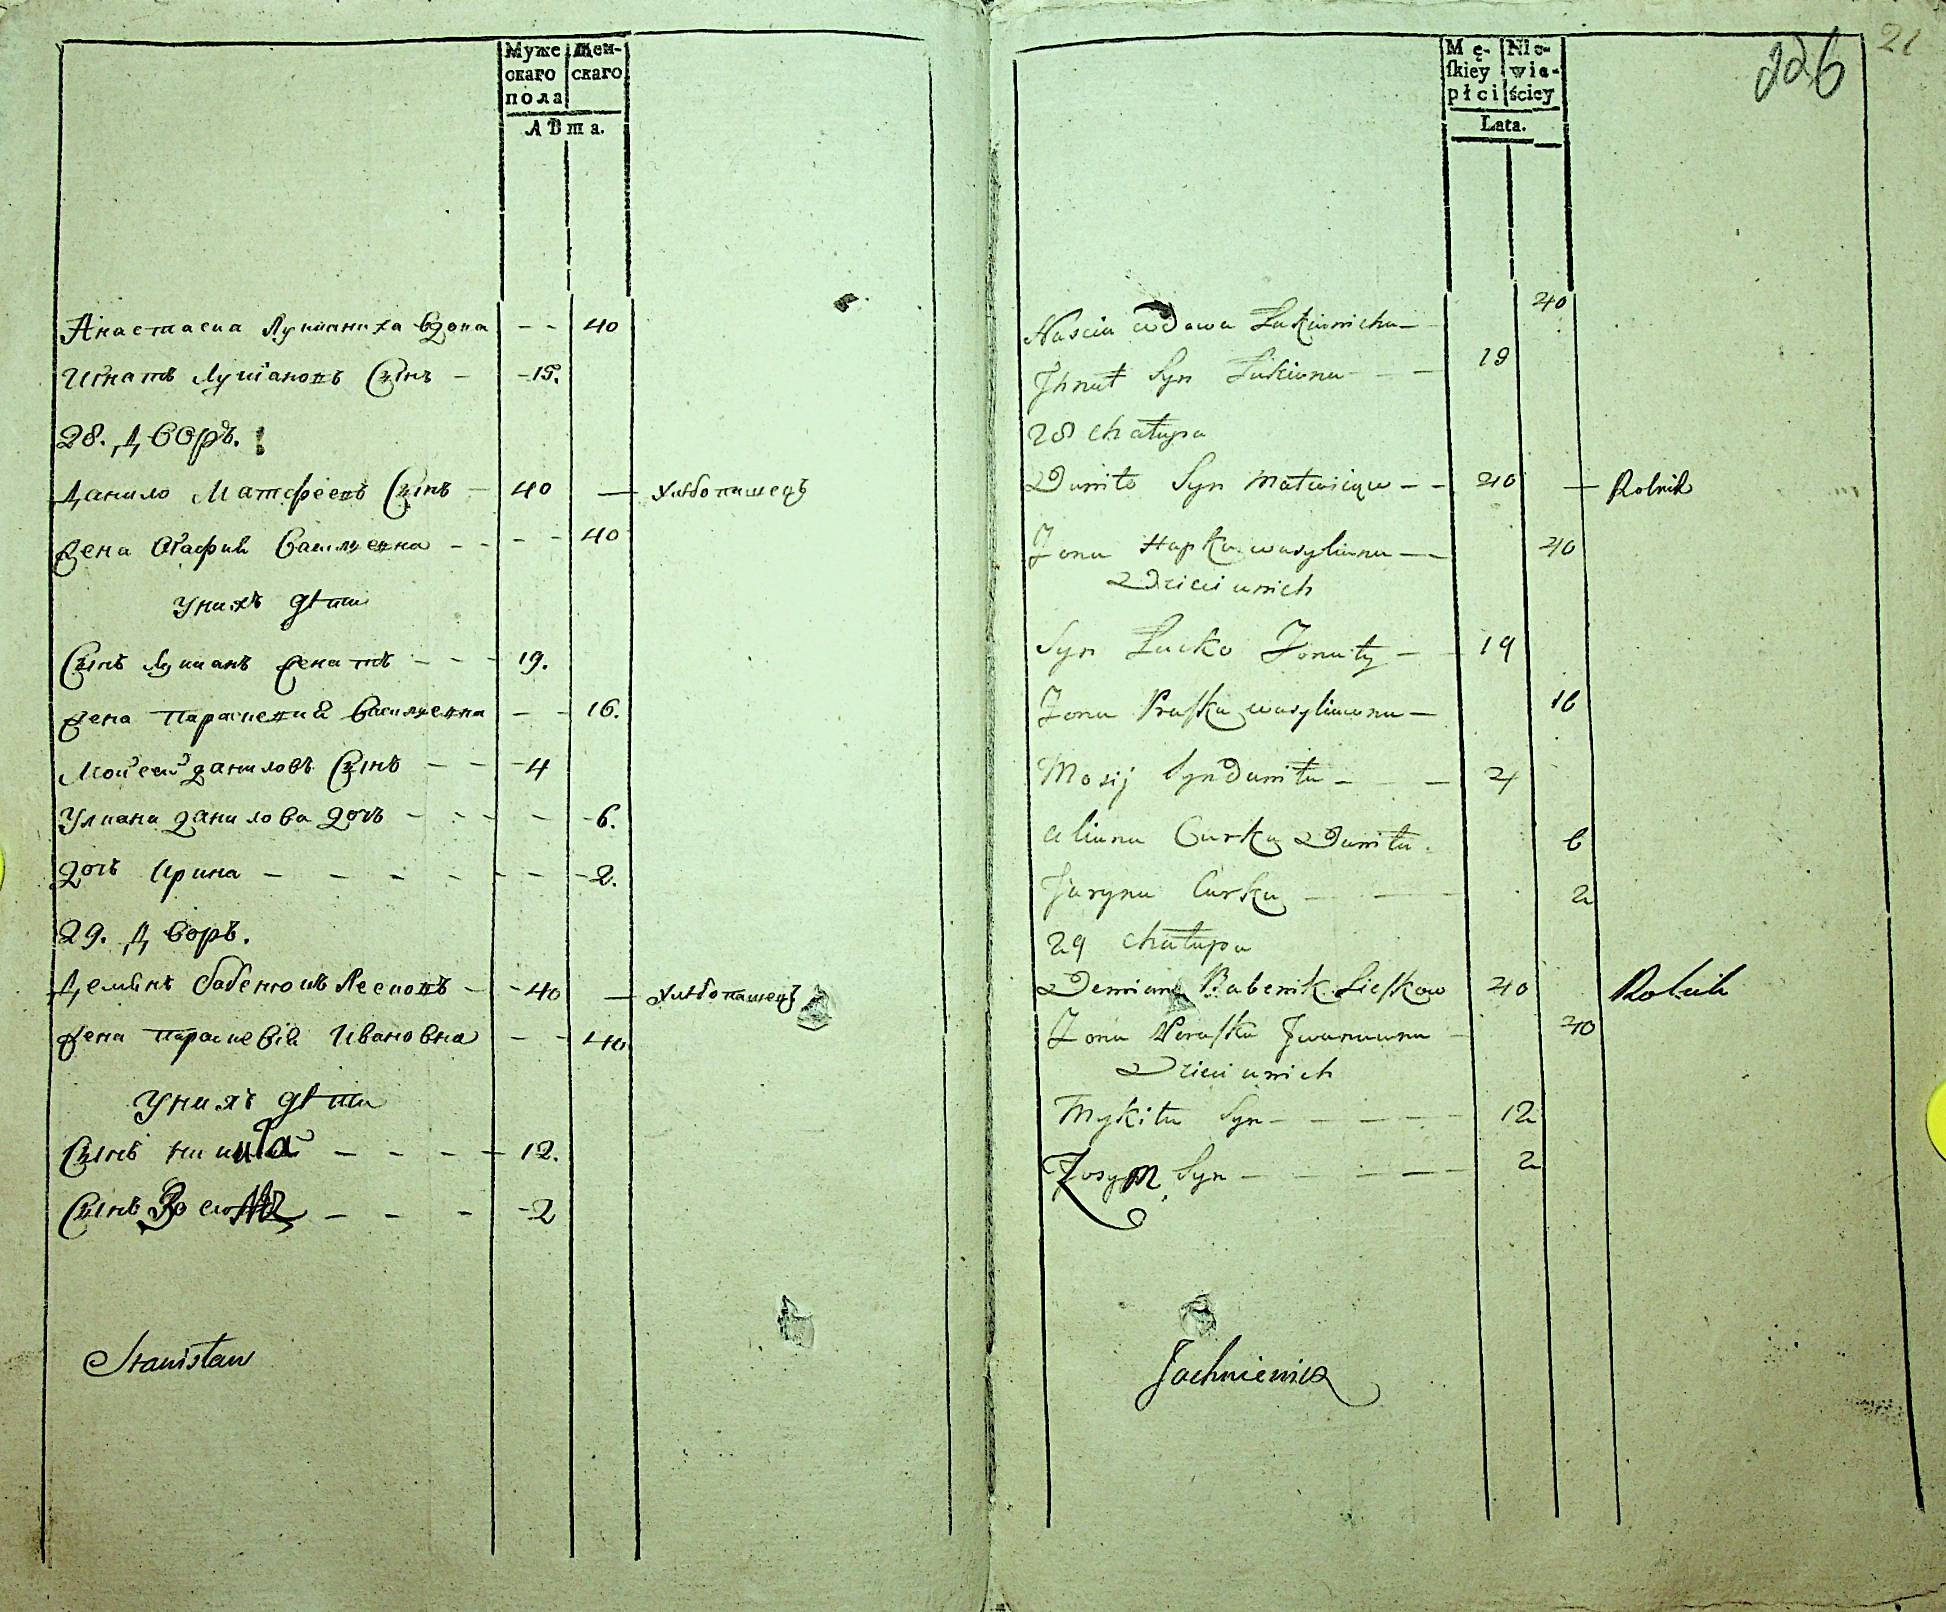 Муже Жен-
скаго скаго
пола
Лѣта.
Анастасиа Лукіаниха вдова - - 40
Игнатъ Лукіановъ Сынъ - - 15.
28. Дворъ.
Данило Матфеевъ Сынъ - 40 — хлѣбопашецъ
Жена Агафия Василевна - - - - 40
У нихъ дѣти
Сынъ Лукианъ женатъ - - - 19.
Жена Параскевия Василевна - - 16.
Моисей Даниловъ Сынъ - - - 4
Улиана Данилова дочь - - - - - 6.
Дочь Ирина - - - - - - - 2.
29. Дворъ.
Демянъ Бабенковъ Лесковъ - - 40 — хлѣбопашецъ
Жена Параскевия Ивановна - - 40.
У нихъ дѣти
Сынъ Никита - - - - 12.
Сынъ - - - - 2
Stanisław
21
226
Mę- Nie-
ſkiey wie-
płci ściey
Lata.
Naścia wdowa Łukianicha — 40
Jhnat Syn Łukiana - - — 19
28 chałupa
Daniło Syn Matwieiew — - 40 — Rolnik
Żona Hapka wasyliwna — - 40
Dzieci u nich
Syn Łucko Żonaty — - 19
Żona Praſka wasyliowna — 16
Mosij Syn Daniła - - — 4
Uliana Curka Daniła. 6
Jaryna Curka - - - 2
29 chałupa
Demian Babenik Lieſkow 40 Rolnik
Żona Paraſka Jwanowna - 40
Dzieci u nich
Mykita Syn - - - - - 12
Zosym Syn - - - - — - 2
Jachniewicz